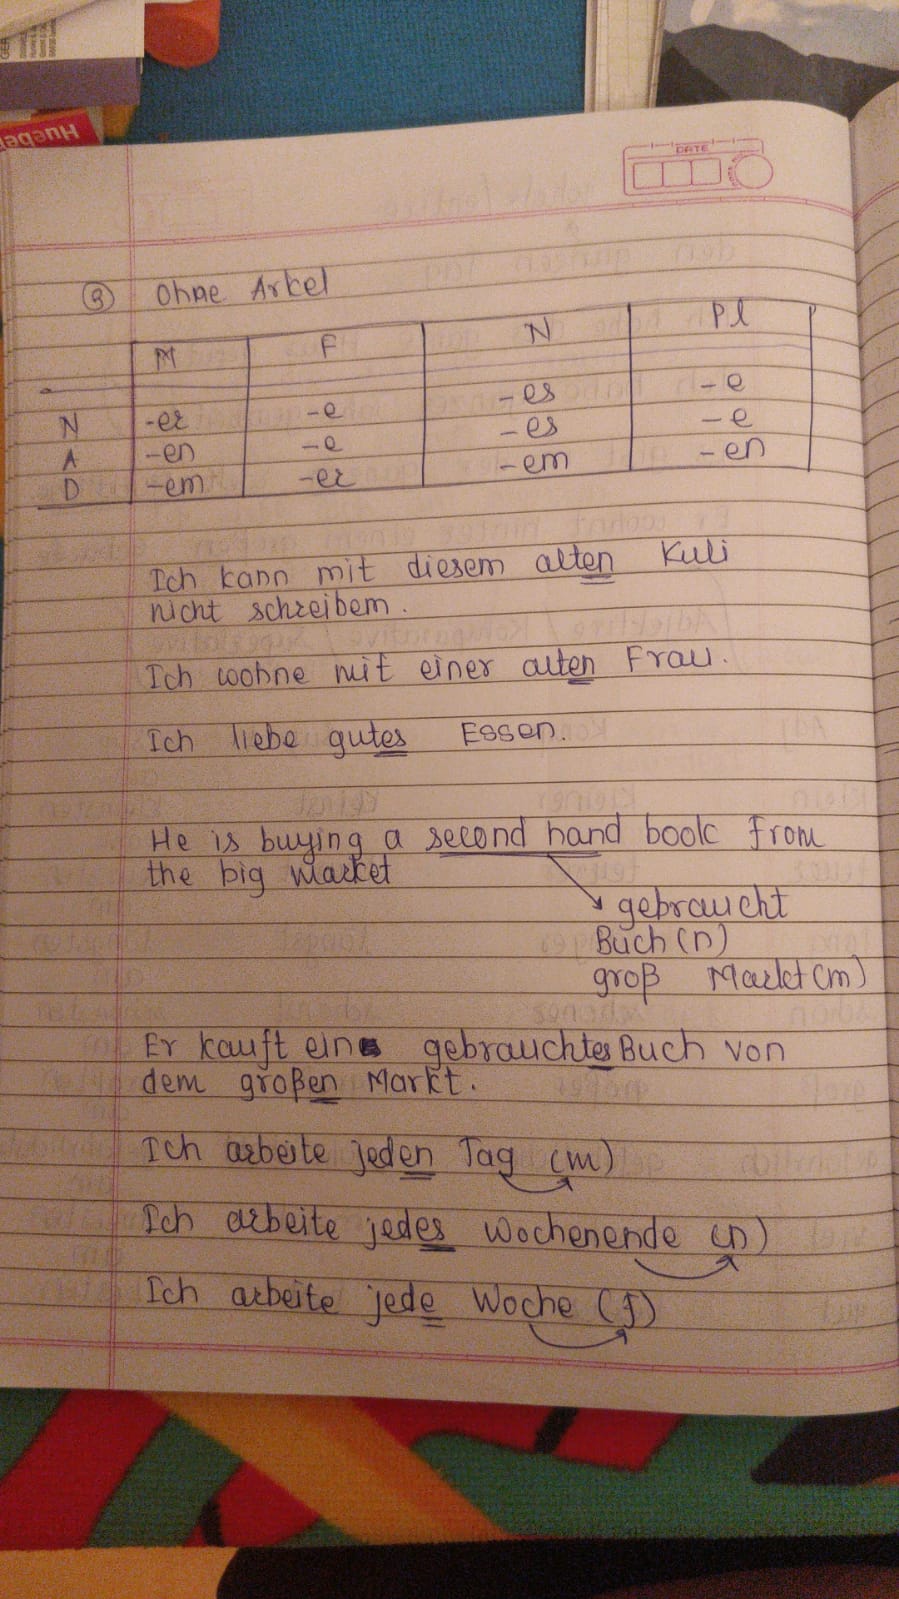 Hueber
DATE
③ Ohne Arkel
M F N Pl
N -er -e -es -e
A -en -e -es -e
D -em -er -em -en
Ich kann mit diesem alten Kuli
nicht schreibem.
Ich wohne mit einer alten Frau.
Ich liebe gutes Essen.
He is buying a second hand book from
the big market
gebraucht
Buch (n)
groß Markt (m)
Er kauft ein gebrauchtes Buch von
dem großen Markt.
Ich arbeite jeden Tag (m)
Ich arbeite jedes Wochenende (n)
Ich arbeite jede Woche (f)